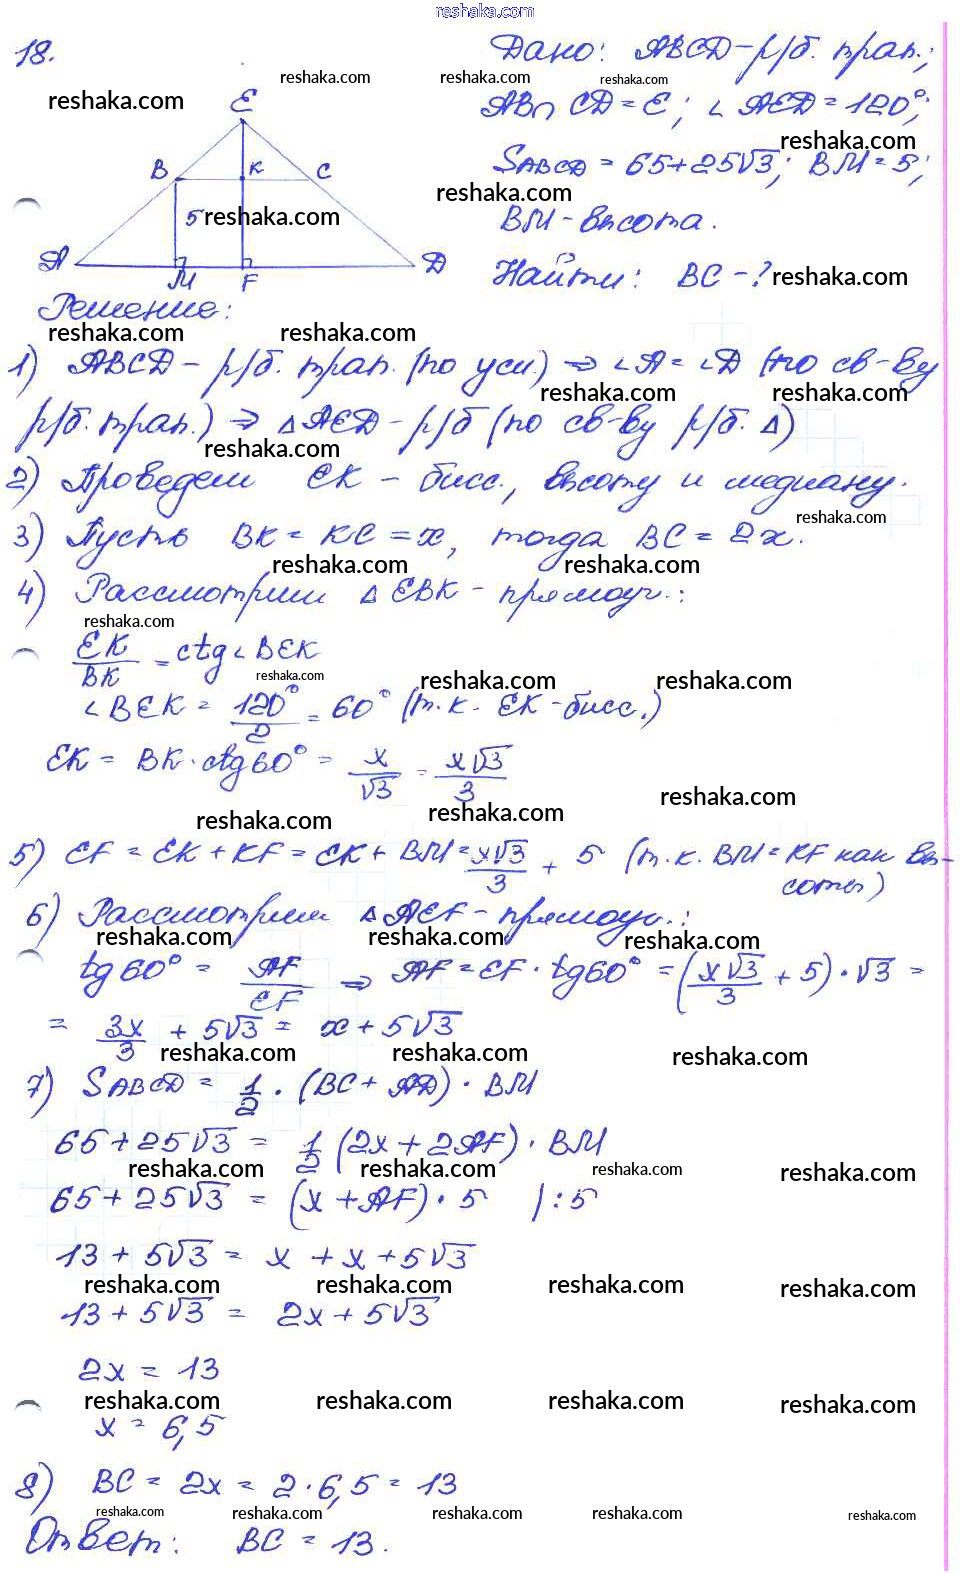 reshaka.com
18.
Дано: ABCD – р/б. трап.;
AB∩CD = E; ∠AED = 120°;
S_ABCD = 65+25√3; BM = 5;
BM – высота.
Найти: BC – ?
E
B K C
5
A M F D
Решение:
1) ABCD – р/б. трап. (по усл.) ⇒ ∠A = ∠D (по св-ву
р/б. трап.) ⇒ △AED – р/б (по св-ву р/б. △)
2) Проведем EK – бисс., высоту и медиану.
3) Пусть BK = KC = x, тогда BC = 2x.
4) Рассмотрим △EBK – прямоуг.:
EK/BK = ctg∠BEK
∠BEK = 120°/2 = 60° (т.к. EK – бисс.)
EK = BK · ctg60° = x/√3 = x√3/3
5) EF = EK + KF = EK + BM = x√3/3 + 5 (т.к. BM = KF как вы-
соты)
6) Рассмотрим △AEF – прямоуг.:
tg60° = AF/EF ⇒ AF = EF · tg60° = (x√3/3 + 5) · √3 =
= 3x/3 + 5√3 = x + 5√3
7) S_ABCD = 1/2 · (BC + AD) · BM
65 + 25√3 = 1/2 (2x + 2AF) · BM
65 + 25√3 = (x + AF) · 5 | : 5
13 + 5√3 = x + x + 5√3
13 + 5√3 = 2x + 5√3
2x = 13
x = 6,5
8) BC = 2x = 2 · 6,5 = 13
Ответ: BC = 13.